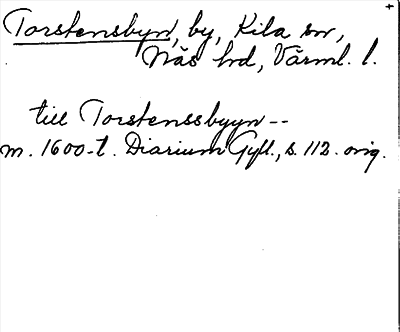 Torstensbyn, by, Kila sn,
Näs hd, Värml. l.
till Torstenssbyyn --
m. 1600-t. Diarium Gyll., s. 112. orig.